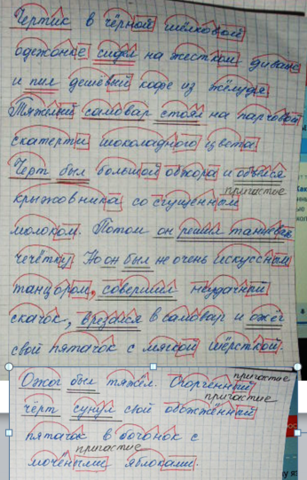 Чертик в чёрной шёлковой
одежонке сидел на жёстком диване
и пил дешёвый кофе из жёлудя
Тяжёлый самовар стоял на парчовой
скатерти шоколадного цвета
Чёрт был большой обжора и объелся
причастие
крыжовника со сгущенным
молоком. Потом он решил танцевать
чечётку Но он был не очень искусным
танцором, совершил неудачный
скачок, врезался в самовар и ожёг
свой пятачок с мягкой шёрсткой.
причастие
Ожог был тяжёл. Огорченный
причастие
чёрт сунул свой обожжённый
пятачок в бочонок с
причастие
мочёными яблоками.